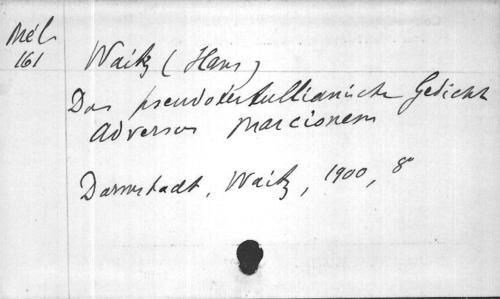 Mél
161
Waitz (Hans)
Das pseudotertullianische Gedicht
adversos Marcionem
Darmstadt, Waitz, 1900, 8°